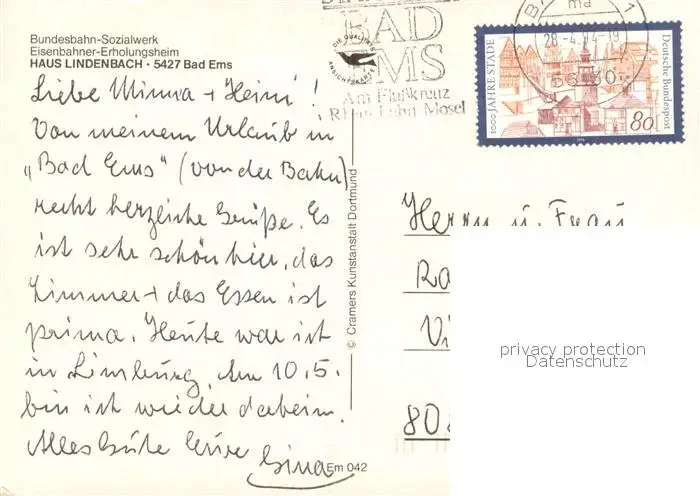 Bundesbahn-Sozialwerk
Eisenbahner-Erholungsheim
HAUS LINDENBACH · 5427 Bad Ems
Liebe Minna + Heini!
Von meinem Urlaub in
"Bad Ems" (von der Bahn)
recht herzliche Grüße. Es
ist sehr schön hier, das
Zimmer + das Essen ist
prima. Heute war ist
in Limburg. Am 10.5.
bin ich wieder daheim.
Alles Gute Eure
Gina
Em 042
© Cramers Kunstanstalt Dortmund
DIE QUALITÄTS
ANSICHTSKARTE
BAD
EMS
Am Flußkreuz
Rhein Lahn Mosel
28.-4.
1000 JAHRE STADE
Deutsche Bundespost
80
Herrn u. Frau
Ra
Vi
808
privacy protection
Datenschutz